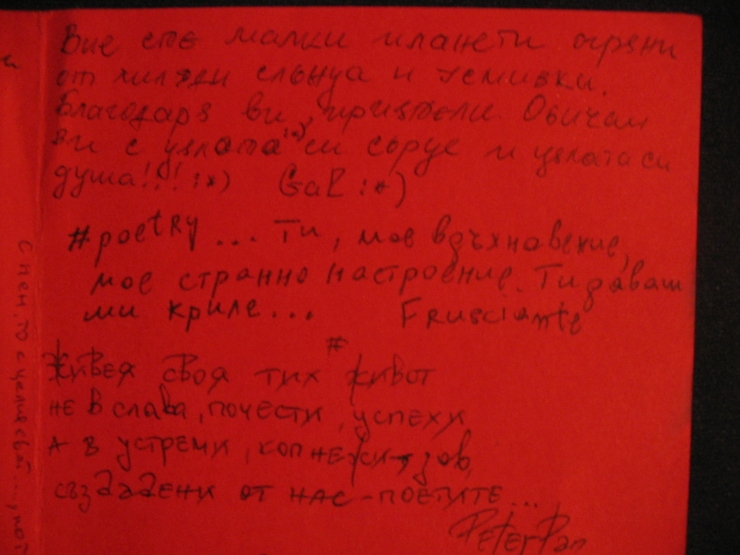 Вие сте малки планети огряни
от хиляди слънца и усмивки.
Благодаря ви, приятели. Обичам
ви с цялата си сърце и цялата си
душа!!! :*) GaZ :*)
#poetry... Ти, мое вдъхновение,
мое странно настроение. Ти даваш
ми криле... Frusciante
#
Живея своя тих живот
не в слава, почести, успехи
а в устреми, копнежи, зов,
създадени от нас-поетите...
PeterPan